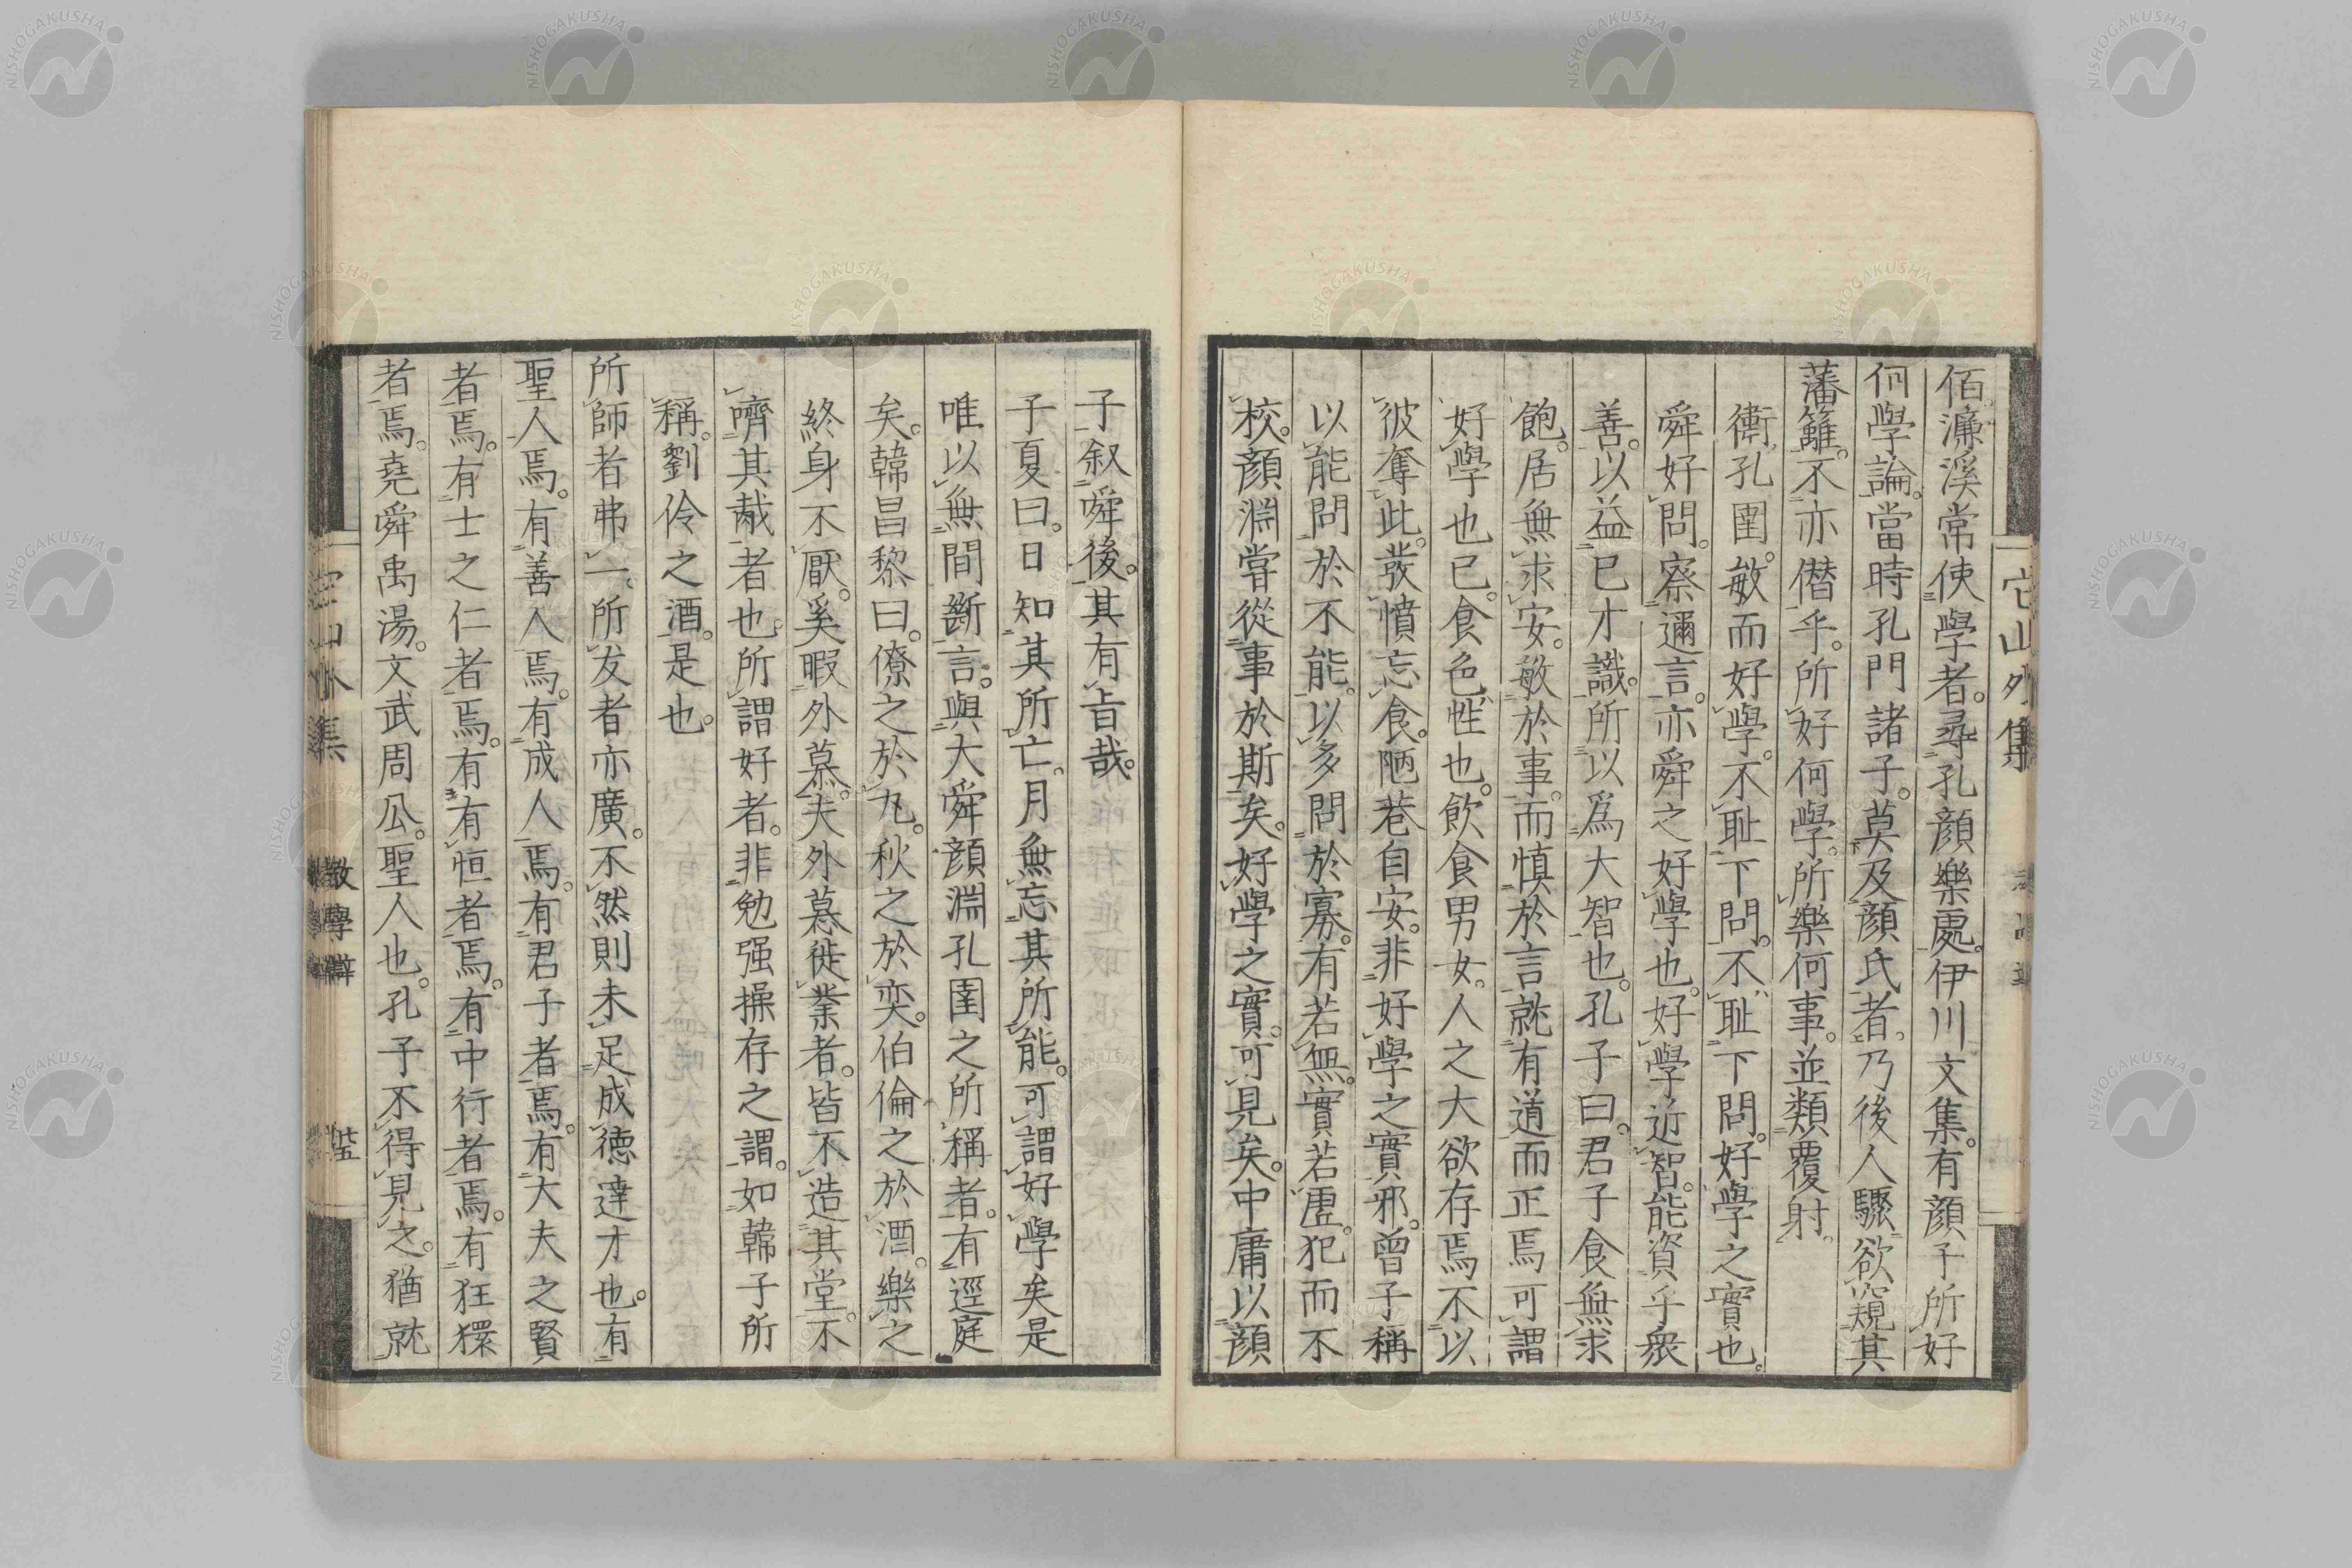 佰濂溪常使學者。尋孔顏樂處。伊川文集。有顏子所好
何學論。當時孔門諸子。莫及顏氏者。乃後人驟欲窺其
藩籬。不亦僭乎。所好何學。所樂何事。並類覆射。
衞孔圉。敏而好學。不耻下問。不耻下問。好學之實也。
舜好問。察邇言。亦舜之好學也。好學近智。能資乎衆
善。以益已才識。所以爲大智也。孔子曰。君子食無求
飽。居無求安。敏於事。而慎於言。就有道而正焉。可謂
好學也已。食色性也。飲食男女。人之大欲存焉。不以
彼奪此。發憤忘食。陋巷自安。非好學之實邪。曾子稱
以能問於不能。以多問於寡。有若無。實若虛。犯而不
校。顏淵嘗從事於斯矣。好學之實。可見矣。中庸以顏
子叙舜後。其有旨哉。
子夏曰。日知其所亡。月無忘其所能。可謂好學矣是
唯以無間斷言。與大舜顏淵孔圉之所稱者。有逕庭
矣。韓昌黎曰。僚之於丸。秋之於奕。伯倫之於酒。樂之
終身不厭。奚暇外慕。夫外慕徙業者。皆不造其堂。不
嚌其胾者也。所謂好者。非勉强操存之謂。如韓子所
稱。劉伶之酒。是也。
所師者弗一。所友者亦廣。不然則未足成德達才也。有
聖人焉。有善人焉。有成人焉。有君子者焉。有大夫之賢
者焉。有士之仁者焉。有有恒者焉。有中行者焉。有狂獧
者焉。堯舜禹湯。文武周公。聖人也。孔子不得見之。猶就
它山外集
教學辯